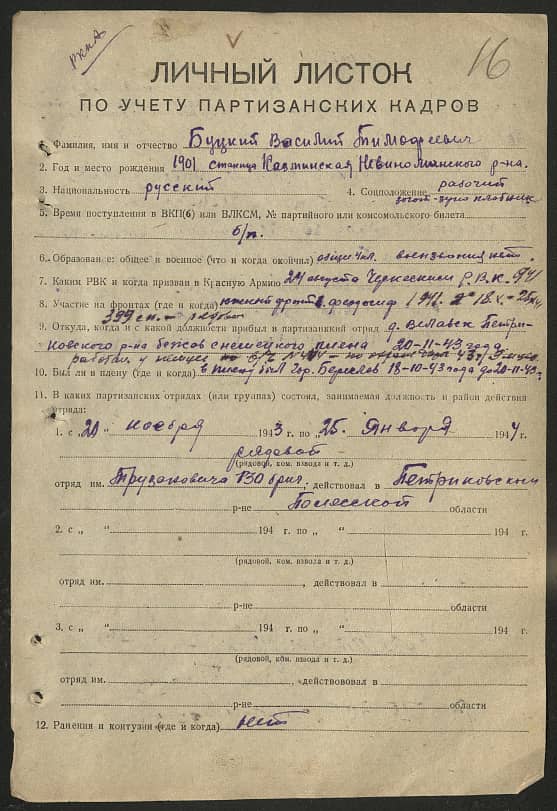 РККА
16
ЛИЧНЫЙ ЛИСТОК
ПО УЧЕТУ ПАРТИЗАНСКИХ КАДРОВ
1. Фамилия, имя и отчество Буцкий Василий Тимофеевич
2. Год и место рождения 1901 станица Казминская Невиномысского р-на.
3. Национальность русский 4. Соцположение рабочий
плотник
5. Время поступления в ВКП(б) или ВЛКСМ, № партийного или комсомольского билета
б/п.
6. Образование: общее и военное (что и когда окончил) общ. 4 кл. воен. звания нет.
7. Каким РВК и когда призван в Красную Армию 24 августа Черкесским Р.В.К. 941
8. Участие на фронтах (где и когда) южный фронт
399 с.п.
9. Откуда, когда и с какой должности прибыл в партизанский отряд д. Велавск Петри-
ковского р-на бежав с немецкого плена 20-11-43 года.
работал у немцев
10. Был ли в плену (где и когда) в плену был гор. 18-10-43 года до 20-11-43 г.
11. В каких партизанских отрядах (или группах) состоял, занимаемая должность и район действия
отряда:
1. с „20 " ноября 1943 г. по „25. " Января 1944 г.
рядовой
(рядовой, ком. взвода и т. д.)
отряд им. 130 бриг., действовал в Петриковским
р-не Полесской области
2. с „ " 194 г. по „ " 194 г.
(рядовой, ком. взвода и т. д.)
отряд им. , действовал в
р-не области
3. с „ " 194 г. по „ " 194 г.
(рядовой, ком. взвода и т. д.)
отряд им. , действовал в
р-не области
12. Ранения и контузии (где и когда) нет